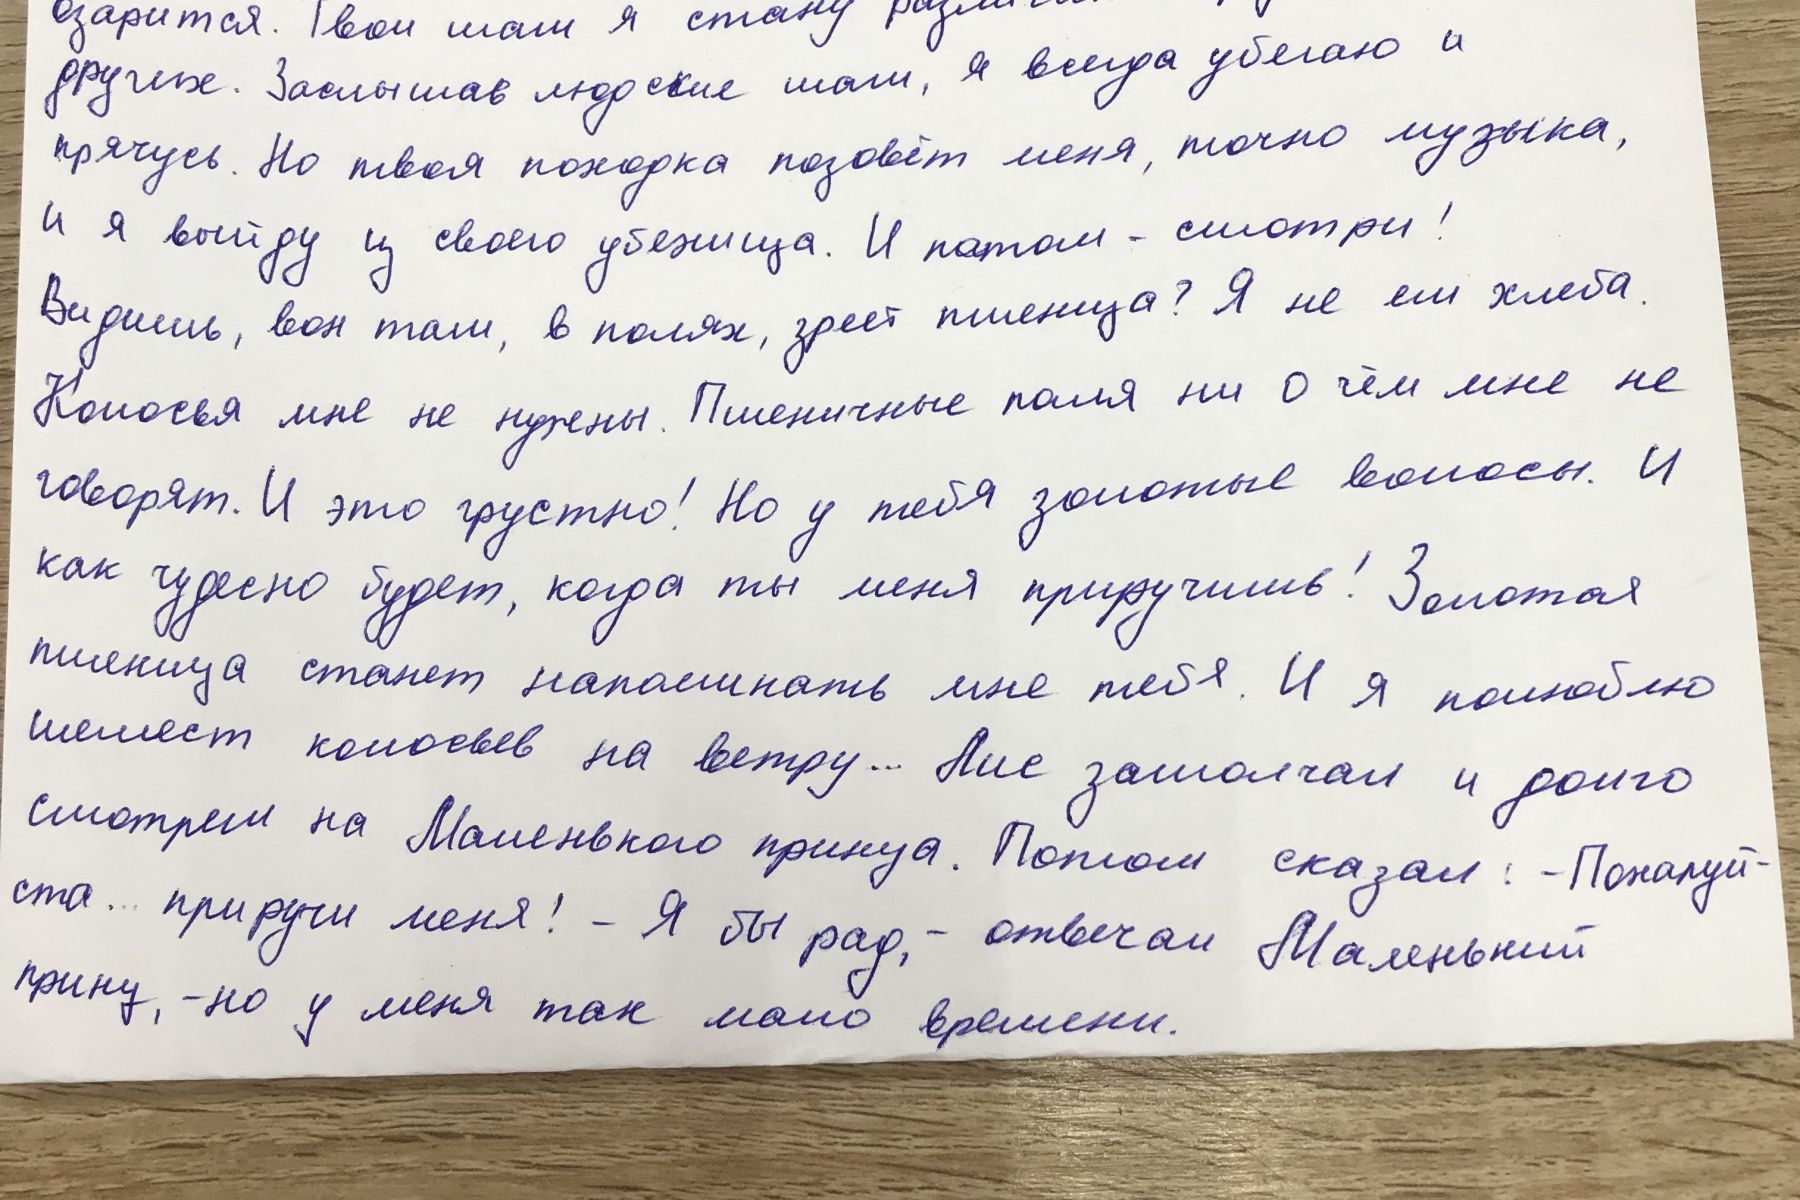 озарится. Твои шаги я стану
других. Заслышав людские шаги, я всегда убегаю и
прячусь. Но твоя походка позовёт меня, точно музыка,
и я выйду из своего убежища. И потом - смотри!
Видишь, вон там, в полях, зреет пшеница? Я не ем хлеба.
Колосья мне не нужны. Пшеничные поля ни о чём мне не
говорят. И это грустно! Но у тебя золотые волосы. И
как чудесно будет, когда ты меня приручишь! Золотая
пшеница станет напоминать мне тебя. И я полюблю
шелест колосьев на ветру... Лис замолчал и долго
смотрел на Маленького принца. Потом сказал: -Пожалуй-
ста... приручи меня! - Я бы рад, - отвечал Маленький
принц, -но у меня так мало времени.